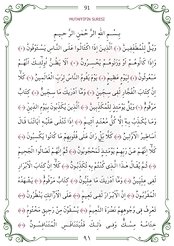 91
MUTAFFİFİN SURESİ
بِسْمِ اللّٰهِ الرَّحْمٰنِ الرَّحِيمِ
وَيْلٌ لِلْمُطَفِّفِينَ الَّذِينَ اِذَا اكْتَالُوا عَلَى النَّاسِ يَسْتَوْفُونَ
وَاِذَا كَالُوهُمْ اَوْ وَزَنُوهُمْ يُخْسِرُونَ اَلَا يَظُنُّ اُولٰئِكَ اَنَّهُمْ
مَبْعُوثُونَ لِيَوْمٍ عَظِيمٍ يَوْمَ يَقُومُ النَّاسُ لِرَبِّ الْعَالَمِينَ كَلَّا
اِنَّ كِتَابَ الْفُجَّارِ لَفِي سِجِّينٍ وَمَا اَدْرٰيكَ مَا سِجِّينٌ كِتَابٌ
مَرْقُومٌ وَيْلٌ يَوْمَئِذٍ لِلْمُكَذِّبِينَ الَّذِينَ يُكَذِّبُونَ بِيَوْمِ الدِّينِ
وَمَا يُكَذِّبُ بِهِ اِلَّا كُلُّ مُعْتَدٍ اَثِيمٍ اِذَا تُتْلٰى عَلَيْهِ اٰيَاتُنَا قَالَ
اَسَاطِيرُ الْاَوَّلِينَ كَلَّا بَلْ رَانَ عَلٰى قُلُوبِهِمْ مَا كَانُوا يَكْسِبُونَ
كَلَّا اِنَّهُمْ عَنْ رَبِّهِمْ يَوْمَئِذٍ لَمَحْجُوبُونَ ثُمَّ اِنَّهُمْ لَصَالُوا الْجَحِيمِ
ثُمَّ يُقَالُ هٰذَا الَّذِي كُنْتُمْ بِهِ تُكَذِّبُونَ كَلَّا اِنَّ كِتَابَ الْاَبْرَارِ
لَفِي عِلِّيِّينَ وَمَا اَدْرٰيكَ مَا عِلِّيُّونَ كِتَابٌ مَرْقُومٌ يَشْهَدُهُ
الْمُقَرَّبُونَ اِنَّ الْاَبْرَارَ لَفِي نَعِيمٍ عَلَى الْاَرَائِكِ يَنْظُرُونَ
تَعْرِفُ فِي وُجُوهِهِمْ نَضْرَةَ النَّعِيمِ يُسْقَوْنَ مِنْ رَحِيقٍ مَخْتُومٍ
خِتَامُهُ مِسْكٌ وَفِي ذٰلِكَ فَلْيَتَنَافَسِ الْمُتَنَافِسُونَ
٩١